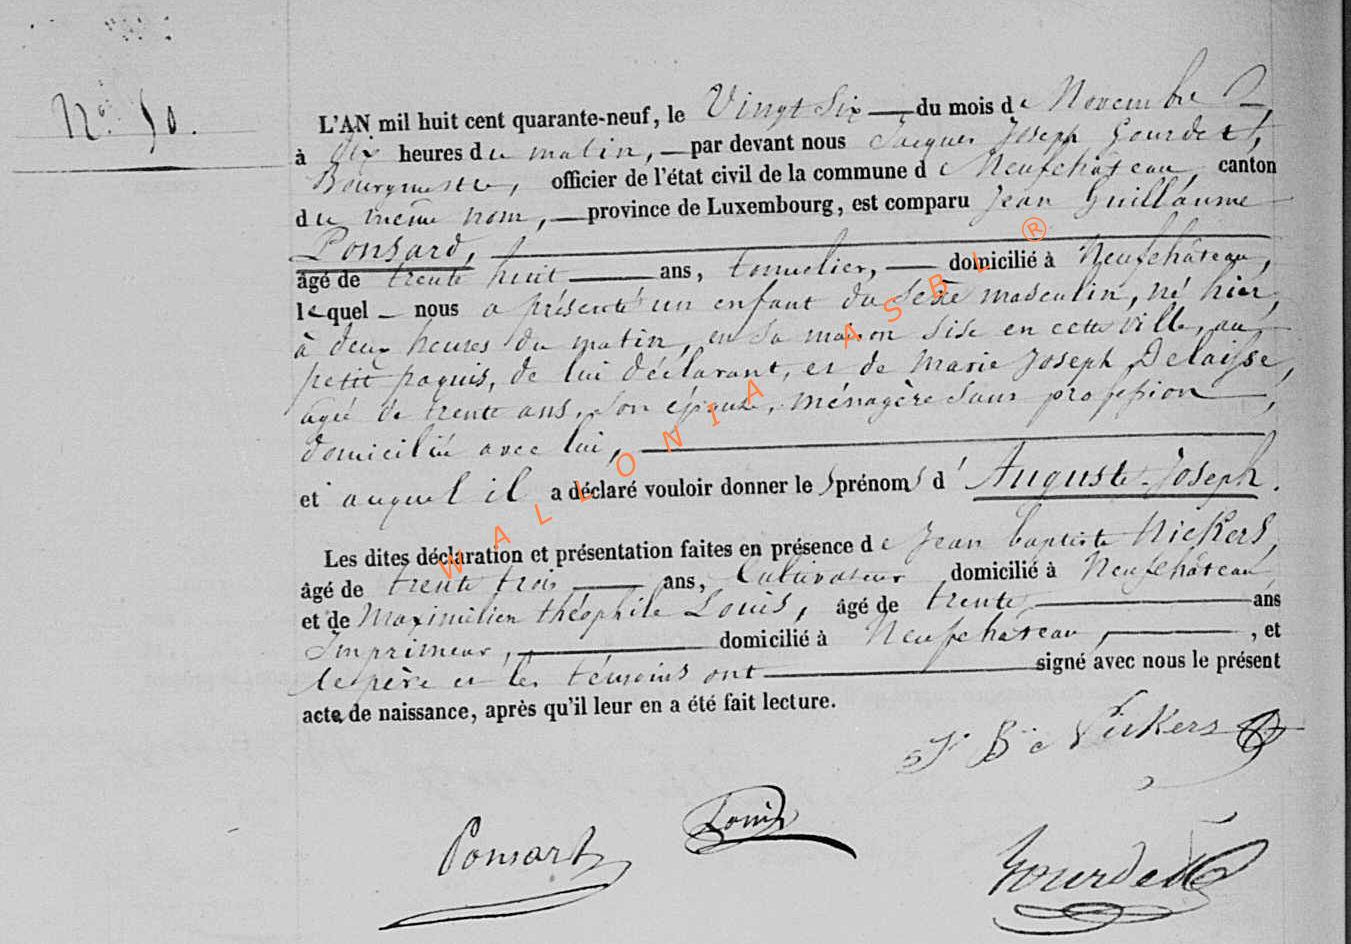 N.º 50.
L'AN mil huit cent quarante-neuf, le Vingt Six du mois de Novembre
à dix heures du matin, par devant nous Jacques Joseph Gourdet,
Bourgmestre, officier de l'état civil de la commune de Neufchateau, canton
du même nom, province de Luxembourg, est comparu Jean Guillaume
Ponsard,
âgé de trente huit ans, tonnelier, domicilié à Neufchâteau,
lequel nous a présenté un enfant du sexe masculin, né hier,
à deux heures du matin, en sa maison sise en cette ville, au
petit paquis, de lui déclarant, et de Marie Joseph Delaisse,
agée de trente ans, son épouse, ménagère sans profession,
domiciliée avec lui,
et auquel il a déclaré vouloir donner les prénoms d'Auguste-Joseph.
Les dites déclaration et présentation faites en présence de Jean baptiste Nickers,
âgé de trente trois ans, Cultivateur domicilié à Neufchâteau,
et de Maximilien théophile Louis, âgé de trente ans
Imprimeur, domicilié à Neufchâteau, , et
le père et les témoins ont signé avec nous le présent
acte de naissance, après qu'il leur en a été fait lecture.
J. Bte Nickers
Louis
Ponsart
Gourdet
WALLONIA ASBL ®